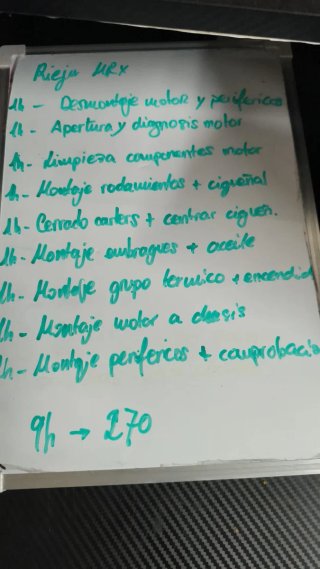 Rieju MRX
1h - Desmontaje motor y perifericos
1h - Apertura y diagnosis motor
1h - Limpieza componentes motor
1h - Montaje rodamientos + cigueñal
1h - Cerrado carters + centrar cigueñ.
1h - Montaje embragues + aceite
1h - Montaje grupo termico + encendid
1h - Montaje motor a chasis
1h - Montaje perifericos + comprobacio
9h → 270